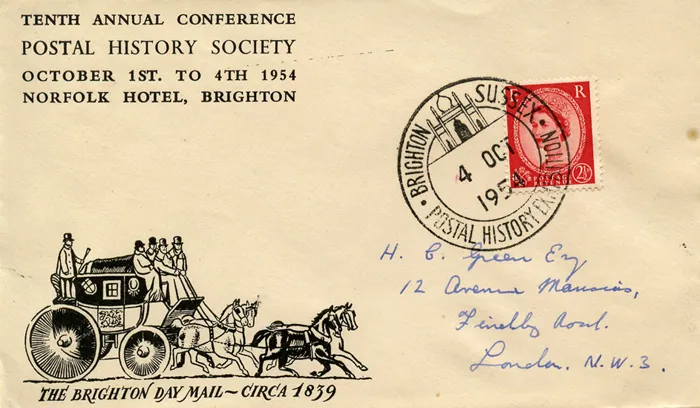 TENTH ANNUAL CONFERENCE
POSTAL HISTORY SOCIETY
OCTOBER 1ST. TO 4TH 1954
NORFOLK HOTEL, BRIGHTON
BRIGHTON · SUSSEX ·
4 OCT
1954
· POSTAL HISTORY EXHIBITION
R
2½
H. C. Green Esq,
12 Avenue Mansions,
Finchley Road.
London. N.W.3.
THE BRIGHTON DAY MAIL ~ CIRCA 1839